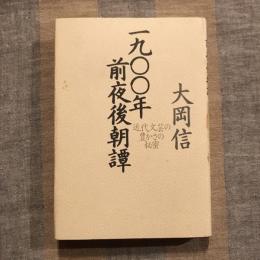 一九〇〇年
前夜後朝譚
近代文芸の
豊かさの
秘密
大岡信